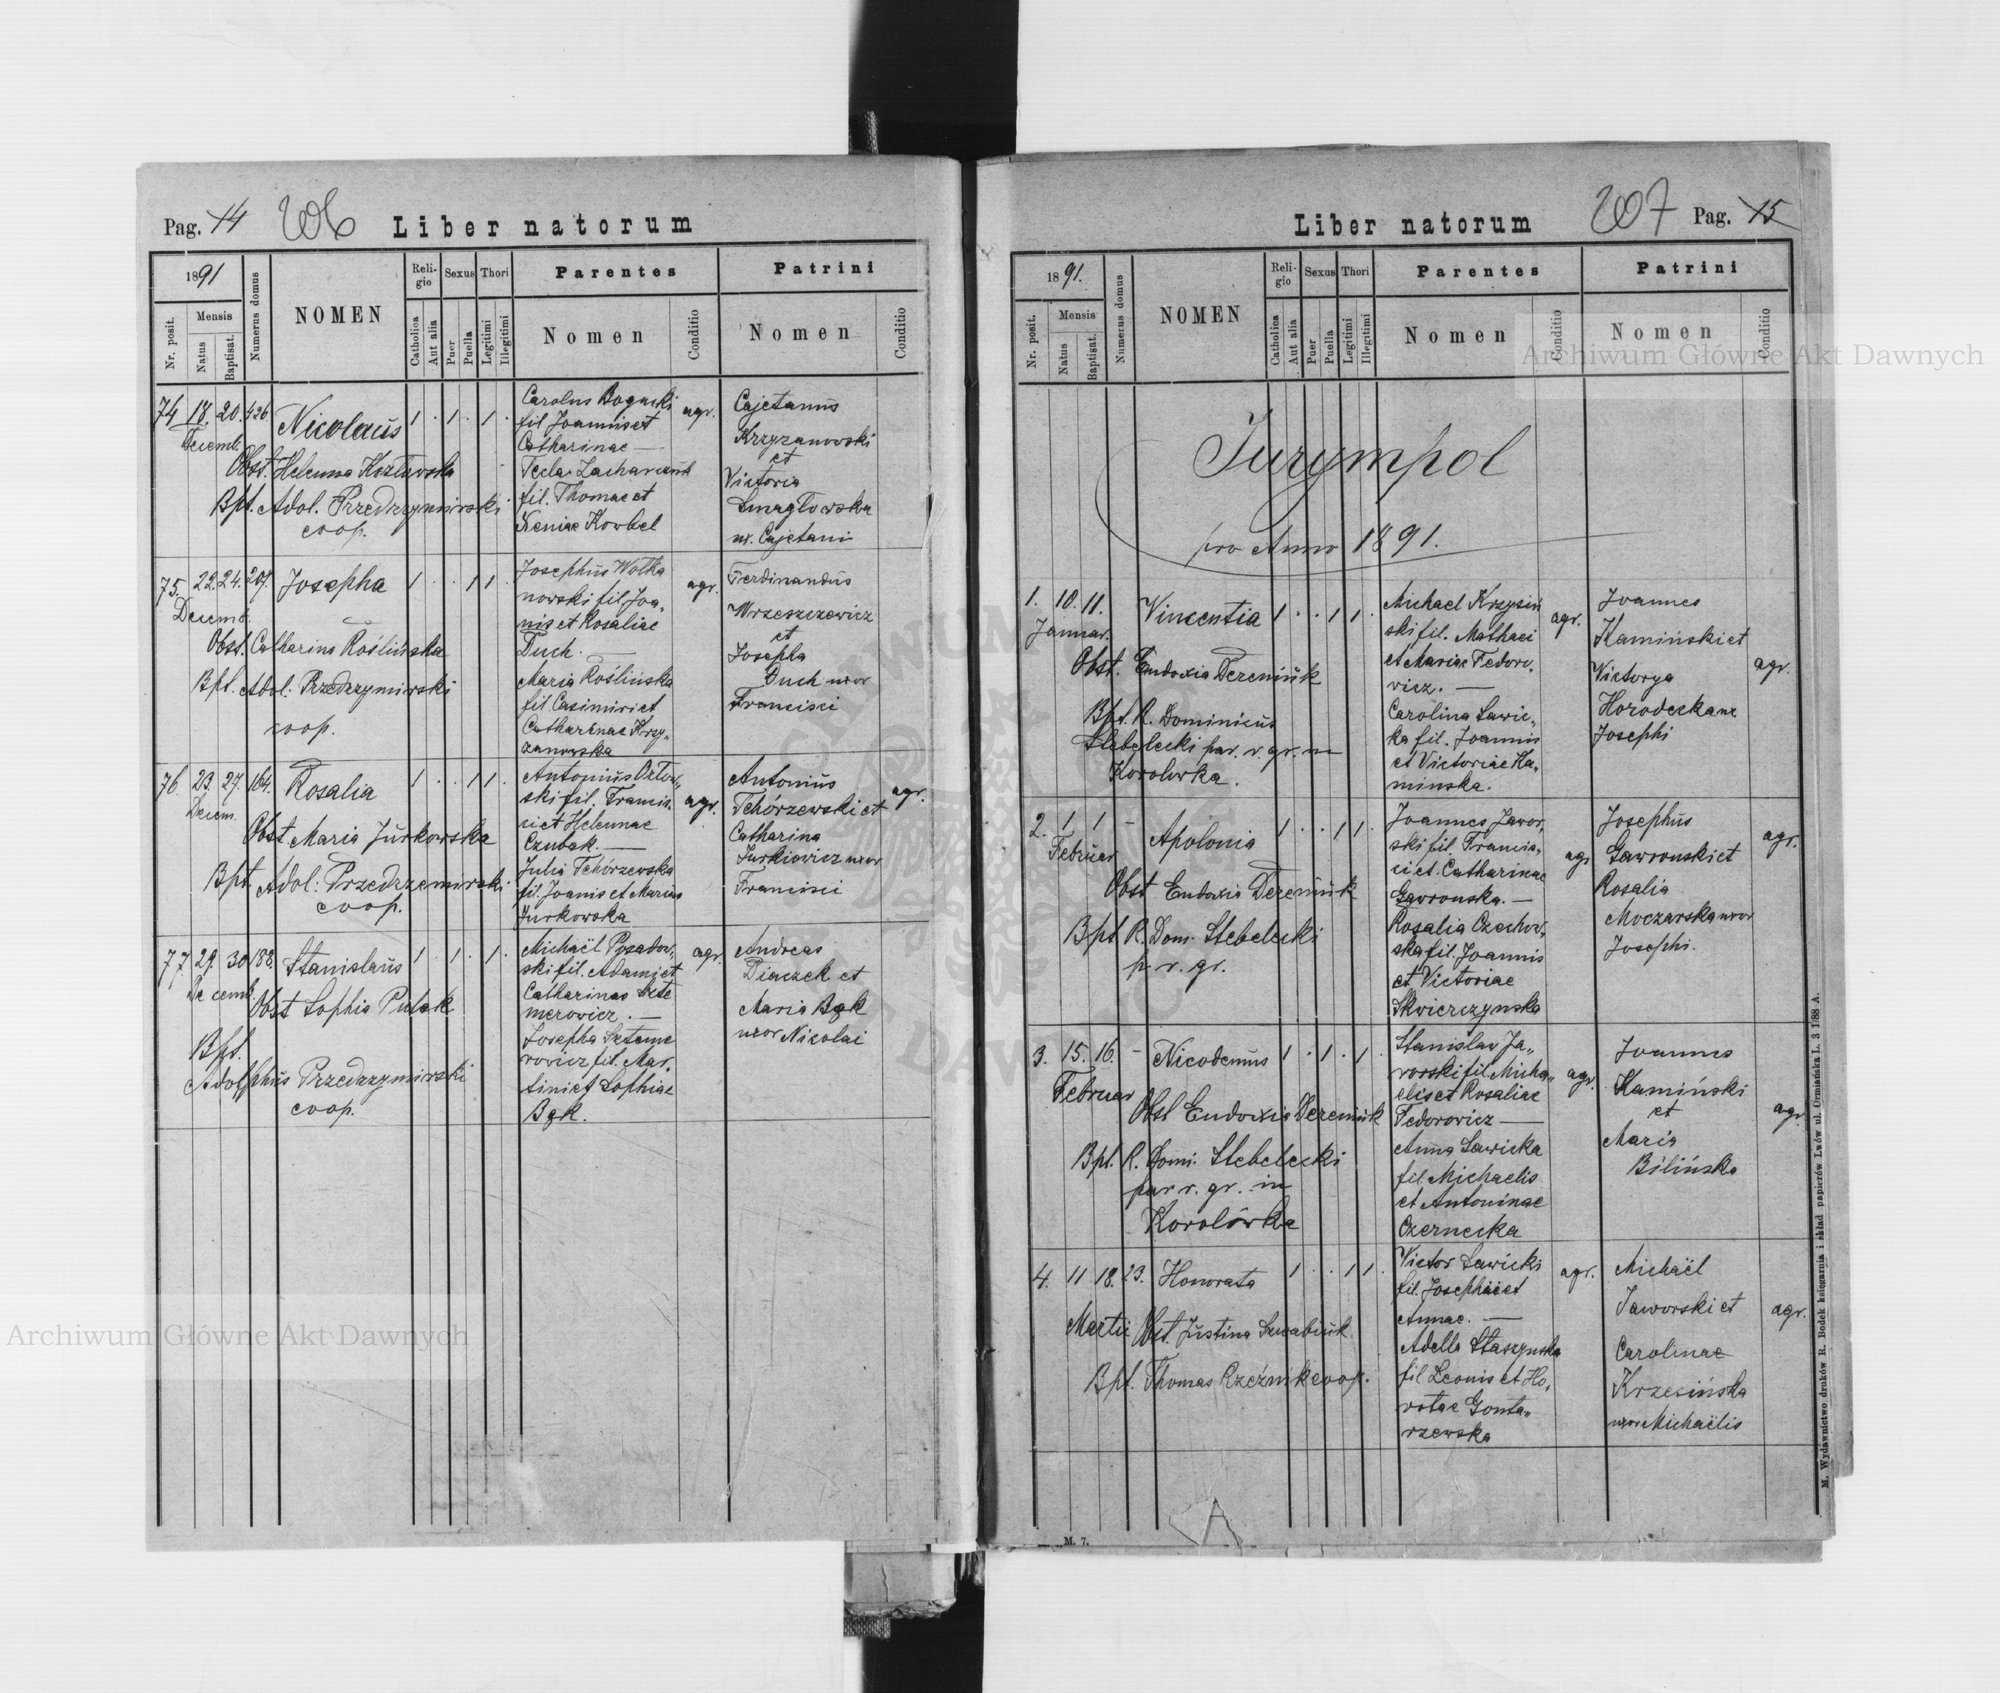 Pag. 14 206 Liber natorum
1891
Nr. posit.
Mensis
Natus
Baptisat.
Numerus domus
NOMEN
Reli-
gio
Catholica
Aut alia
Sexus
Puer
Puella
Thori
Legitimi
Illegitimi
Parentes
Nomen
Conditio
Patrini
Nomen
Conditio
74 18. 20. 426
Decemb.
Nicolaus 1 . 1 . 1 .
Obst. Helenna Kozłowska
Bpt. Adol. Przedrzymirski
coop.
Carolus Bogucki
fil Joannis et
Catharinae —
Tecla Zacharczuk
fil. Thomae et
Xeniae Korbel
agr.
Cajetanus
Krzyzanowski
et
Victoria
Smagłowska
ux. Cajetani
75. 22. 24. 207.
Decemb.
Josepha 1 . . 1 1 .
Obst. Catharina Roślińska
Bpt. Adol: Przedrzymirski
coop.
Josephus Wolka
nowski fil Joa„
nis et Rosaliae
Duch. —
Maria Roślińska
fil Casimiri et
Catharinae Krzy„
zanowska
agr.
Ferdinandus
Wrzeszczewicz
et
Josepha
Duch uxor
Francisci
76 23. 27. 164.
Decem.
Rosalia 1 . . 1 1 .
Obst Maria Jurkowska
Bpt Adol: Przedrzemirski
coop.
Antonius Orłow„
ski fil. Francis.
ci et Helennae
Czubak. —
Julia Tchórzewska
fil. Joanis et Mariae
Jurkowska
agr.
Antonius
Tchórzewski et
Catharina
Jurkiewicz uxor
Francisci
agr.
77 29. 30 188.
Decemb.
Stanislaus 1 . 1 . 1 .
Obst Sophia Pulak
Bpt.
Adolphus Przedrzymirski
coop.
Michaël Posadow„
ski fil. Adami et
Catharinae Szte
merowicz. —
Josepha Szteme
rowicz fil. Mar„
tini et Sophiae
Bąk.
agr.
Andreas
Diaczek et
Maria Bąk
uxor Nicolai
Liber natorum 207 Pag. 15
1891.
Nr. posit.
Mensis
Natus
Baptisat.
Numerus domus
NOMEN
Reli-
gio
Catholica
Aut alia
Sexus
Puer
Puella
Thori
Legitimi
Illegitimi
Parentes
Nomen
Conditio
Patrini
Nomen
Conditio
Jurympol
pro Anno 1891.
1. 10. 11.
Januar.
Vincentia 1 . . 1 1 .
Obst. Eudoxia Deremiuk
Bpt. R. Dominicus
Stebelecki par. r. gr. in
Korolówka.
Michael Krzysiń
ski fil. Mathaei
et Mariae Fedoro„
wicz. —
Carolina Sawic„
ka fil. Joannis
et Victoriae Ka„
minska.
agr.
Joannes
Kamiński et
Victorya
Horodecka ux
Josephi
agr.
2. 1 1 –
Februar
Apolonia 1 . . 1 1 .
Obst Eudoxia Deremiuk
Bpt R. Dom. Stebelecki
p r. gr.
Joannes Jawor„
ski fil. Francis„
ci et Catharinae
Gawronska. —
Rosalia Czechow„
ska fil. Joannis
et Victoriae
Skwierczynska
agr
Josephus
Gawronski et
Rosalia
Moczarska uxor
Josephi.
agr.
3. 15. 16. –
Februar
Nicodemus 1 . 1 . 1 .
Obst Eudoxia Deremiuk
Bpt. R. Domi. Stebelecki
par r. gr. in
Korolówka
Stanislav Ja„
worski fil. Micha„
elis et Rosaliae
Fedorowicz —
Anna Sawicka
fil Michaelis
et Antoninae
Czernecka
agr.
Joannes
Kamiński
et
Maria
Bilińska
agr
4. 11 18. 23.
Martii
Honorata 1 . . 1 1 .
Obst Justina Szwabiuk
Bpt. Thomas Rzeźnik coop.
Victor Sawicki
fil. Josephi et
Annae. —
Adella Staszynska
fil Leonis et Ho„
ratae Gonta„
rzewska
agr.
Michaël
Jaworski et
Carolinae
Krzesińska
uxor Michaëlis
agr.
M. 7.
M. Wydawnictwo druków R. Bodek księgarnia i skład papierów Lwów ul. Ormiańska L. 3 1/88 A.
Archiwum Główne Akt Dawnych
Archiwum Główne Akt Dawnych